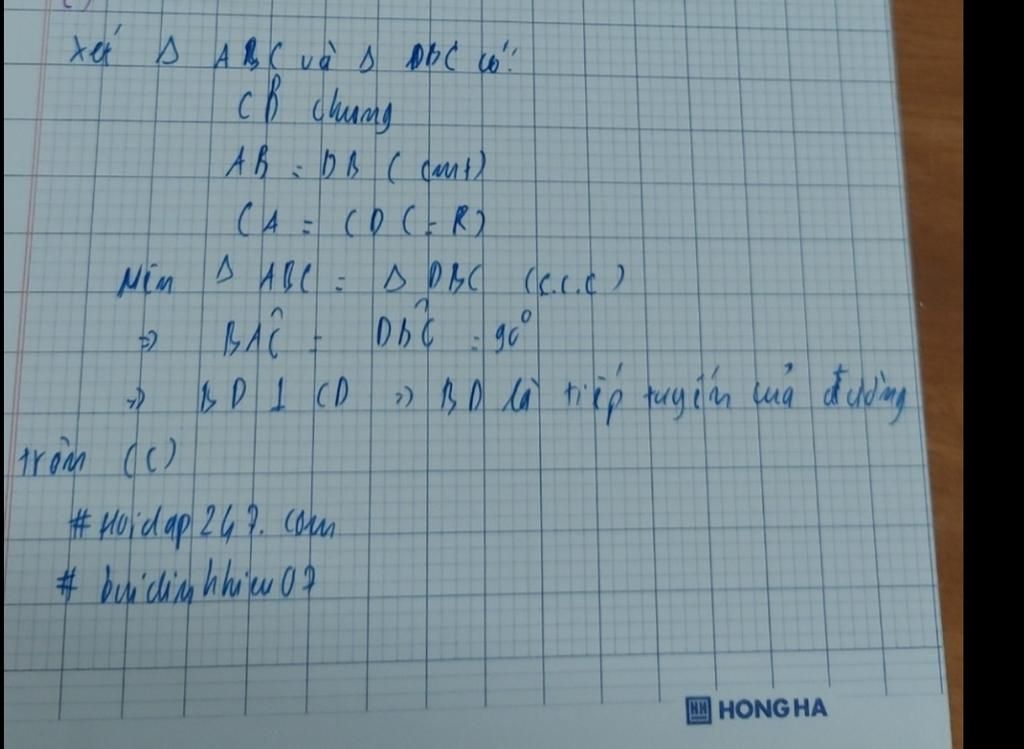 c)
Xét Δ ABC và Δ DBC có:
CB chung
AB = DB (cmt)
CA = CD (= R)
Nên Δ ABC = Δ DBC (c.c.c)
=> BAĈ = DBĈ = 90°
=> BD ⊥ CD => BD là tiếp tuyến của đường
tròn (C)
# Hoidap247.com
# buidinhhieu07
HH HONG HA